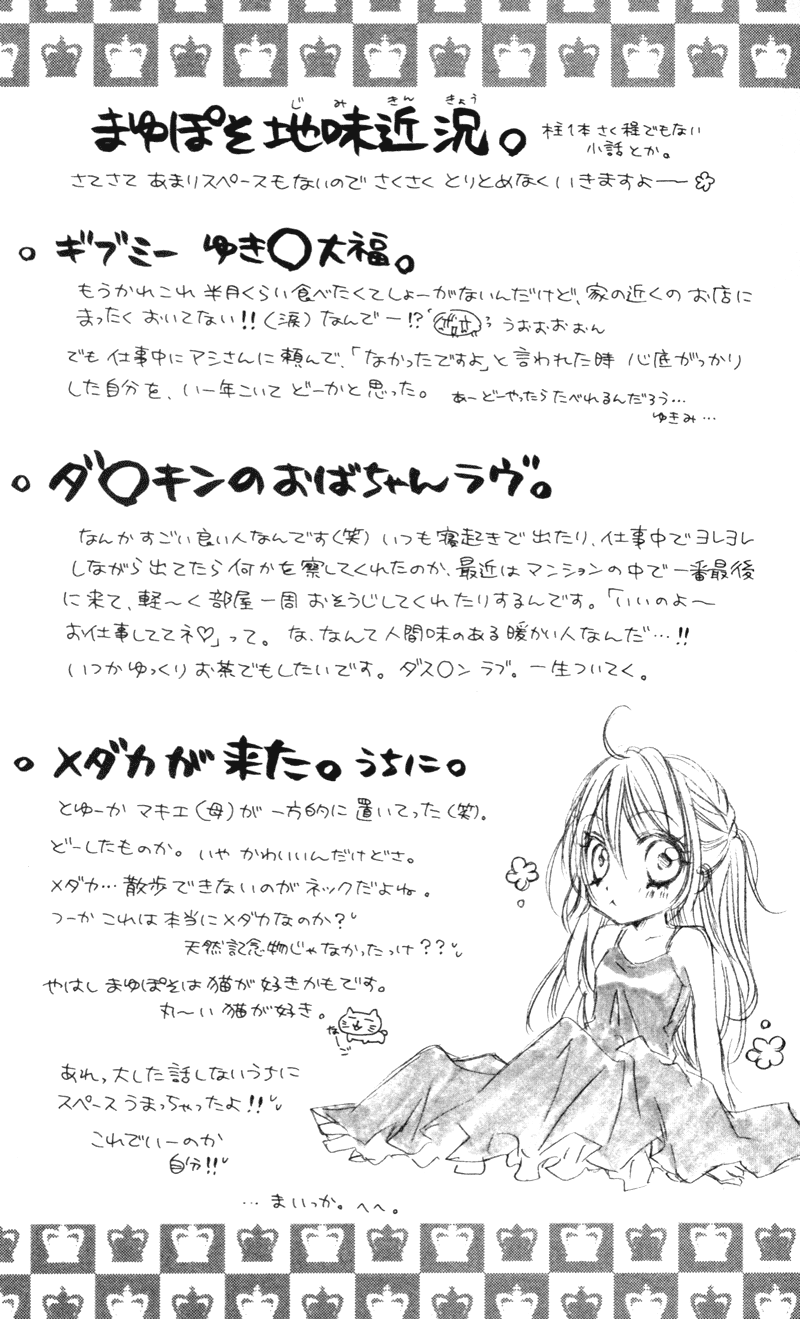 まゆぽそ地味近況。
じみきんきょう
柱1本さく程でもない
小話とか。
さてさて あまりスペースもないので さくさく とりとめなく いきますよー
。ギブミー ゆき〇大福。
もうかれこれ 半月くらい食べたくてしょーがないんだけど、家の近くの お店に
まったく おいてない!!(涙) なんでー!? うおおおおん
でも 仕事中にアシさんに頼んで、「なかったですよ」と言われた時 心底がっかり
した自分を、いー年こいて どーかと思った。
あーどーやったらたべれるんだろう…
ゆきみ…
。ダ〇キンのおばちゃんラヴ。
なんか すごい良い人なんです(笑) いつも 寝起きで 出たり、仕事中で ヨレヨレ
しながら 出てたら 何かを 察してくれたのか、最近は マンションの中で 一番最後
に来て、軽〜く 部屋 一周 おそうじしてくれたりするんです。「いいのよ〜
お仕事しててネ♡」って。 な、なんて 人間味のある 暖かい人なんだ…!!
いつか ゆっくり お茶でもしたいです。 ダス〇ン ラブ。 一生ついてく。
。メダカが 来た。うちに。
とゆーか マキエ(母)が 一方的に 置いてった(笑)。
どーしたものか。 いや かわいいんだけどさ。
メダカ… 散歩できないのが ネックだよね。
つーか これは 本当に メダカなのか?
天然記念物じゃなかったっけ??
やはし まゆぽそは 猫が 好きかもです。
丸〜い 猫が 好き。
なーご
あれっ 大した 話 しないうちに
スペース うまっちゃったよ!!
これでいーのか
自分!!
… まいっか。へへ。